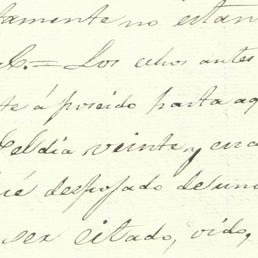 tamente no estan
C.= Los autos antes
te á poseido hasta aq
el dia veinte y cua
ué despojado de una
ser citado, oido,